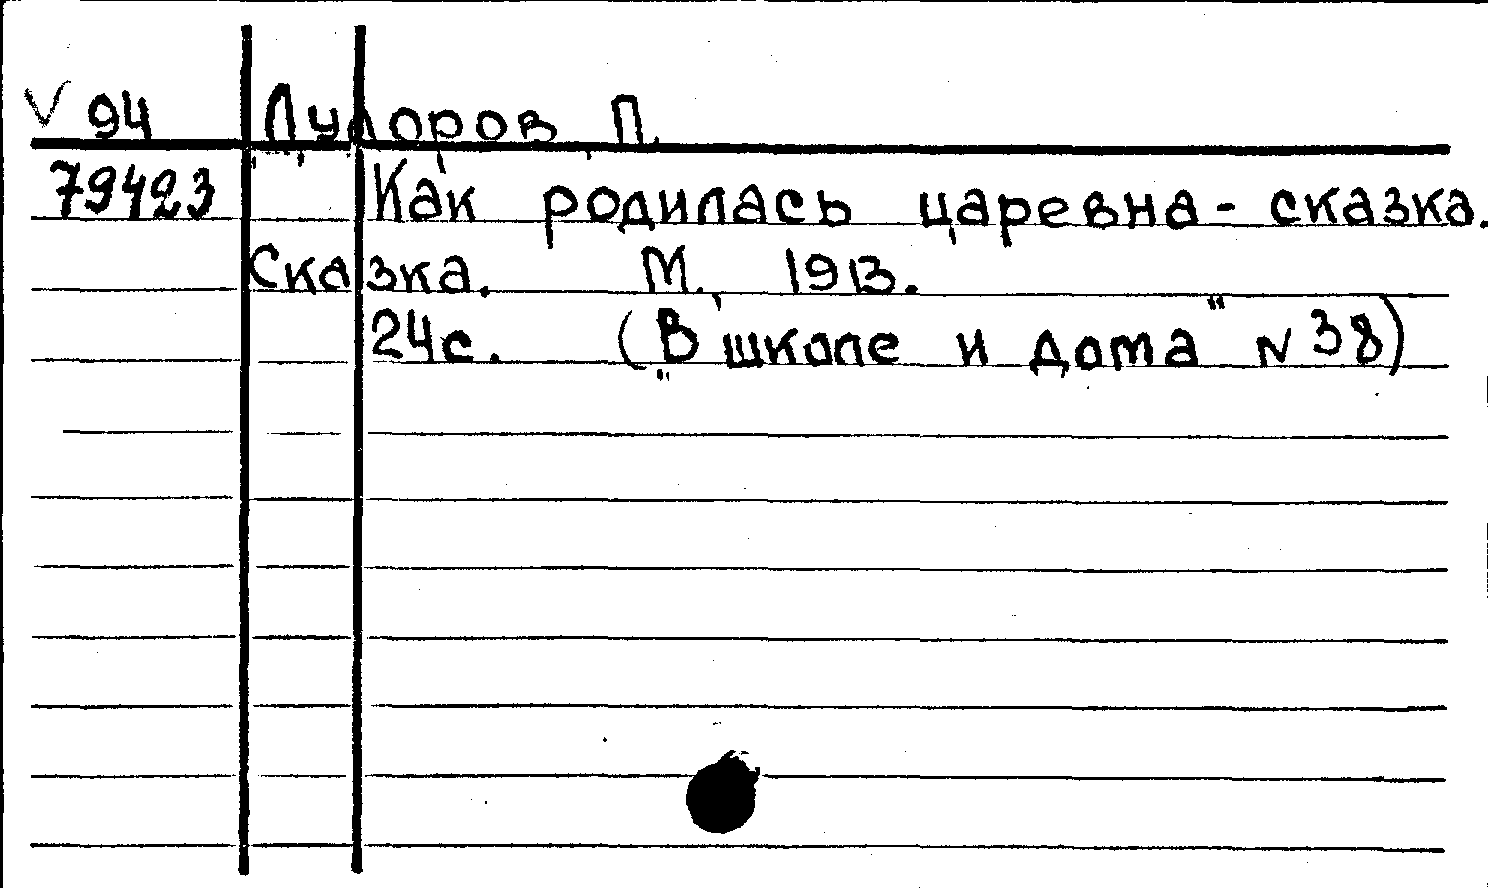 V 94 Дудоров, П.
79423 Как родилась царевна-сказка.
Сказка. М., 1913.
24с. („В школе и дома" N 38)